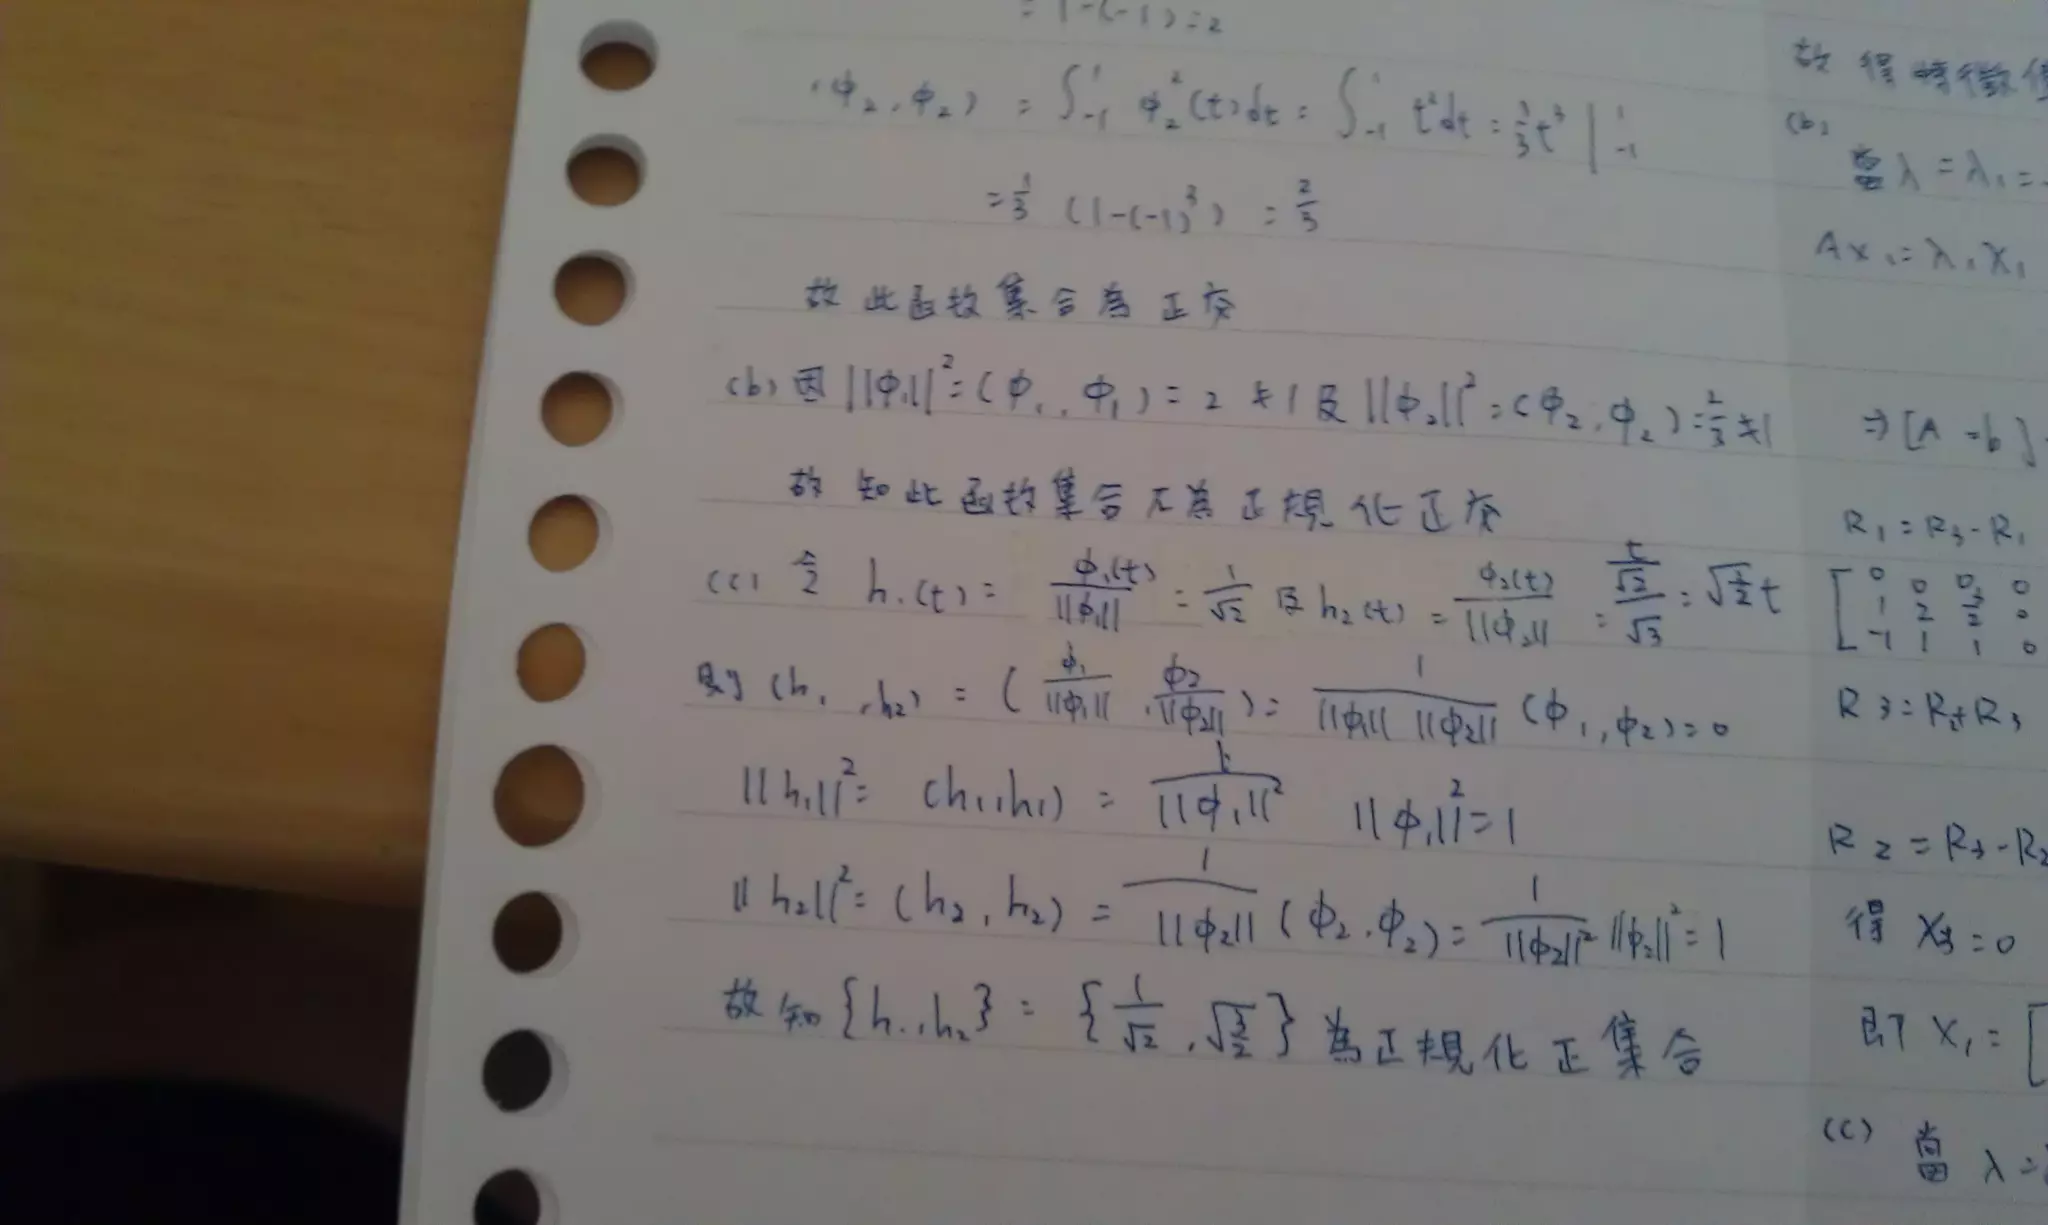 = 1-(-1) = 2
(φ₂, φ₂) = ∫₋₁¹ φ₂²(t)dt = ∫₋₁¹ t²dt = 1/3 t³ |₋₁¹
= 1/3 (1-(-1)³) = 2/3
故此函数集合為正交
(b) 因 ||φ₁||² = (φ₁, φ₁) = 2 ≠ 1 及 ||φ₂||² = (φ₂, φ₂) = 2/3 ≠ 1
故知此函数集合不為正規化正交
(c) 令 h₁(t) = φ₁(t)/||φ₁|| = 1/√2 及 h₂(t) = φ₂(t)/||φ₂|| =
則 (h₁, h₂) = (φ₁/||φ₁||, φ₂/||φ₂||) = 1/(||φ₁|| ||φ₂||) (φ₁, φ₂) = 0
||h₁||² = (h₁, h₁) = 1/||φ₁||² ||φ₁||² = 1
||h₂||² = (h₂, h₂) = 1/||φ₂|| (φ₂, φ₂) = 1/||φ₂||² ||φ₂||² = 1
故知 {h₁, h₂} = {1/√2, √(3/2)} 為正規化正集合
故得特徵值
(b)
當 λ = λ₁ = -
Ax₁ = λ₁X₁
⇒ [A =b]
R₁ = R₃ - R₁
[ 0 0 0 0
1 2 2 0
-1 1 1 0
R₃ = R₂ + R₃
R₂ = R₃ - R₂
得 X₃ = 0
即 X₁ = [
(c) 當 λ =